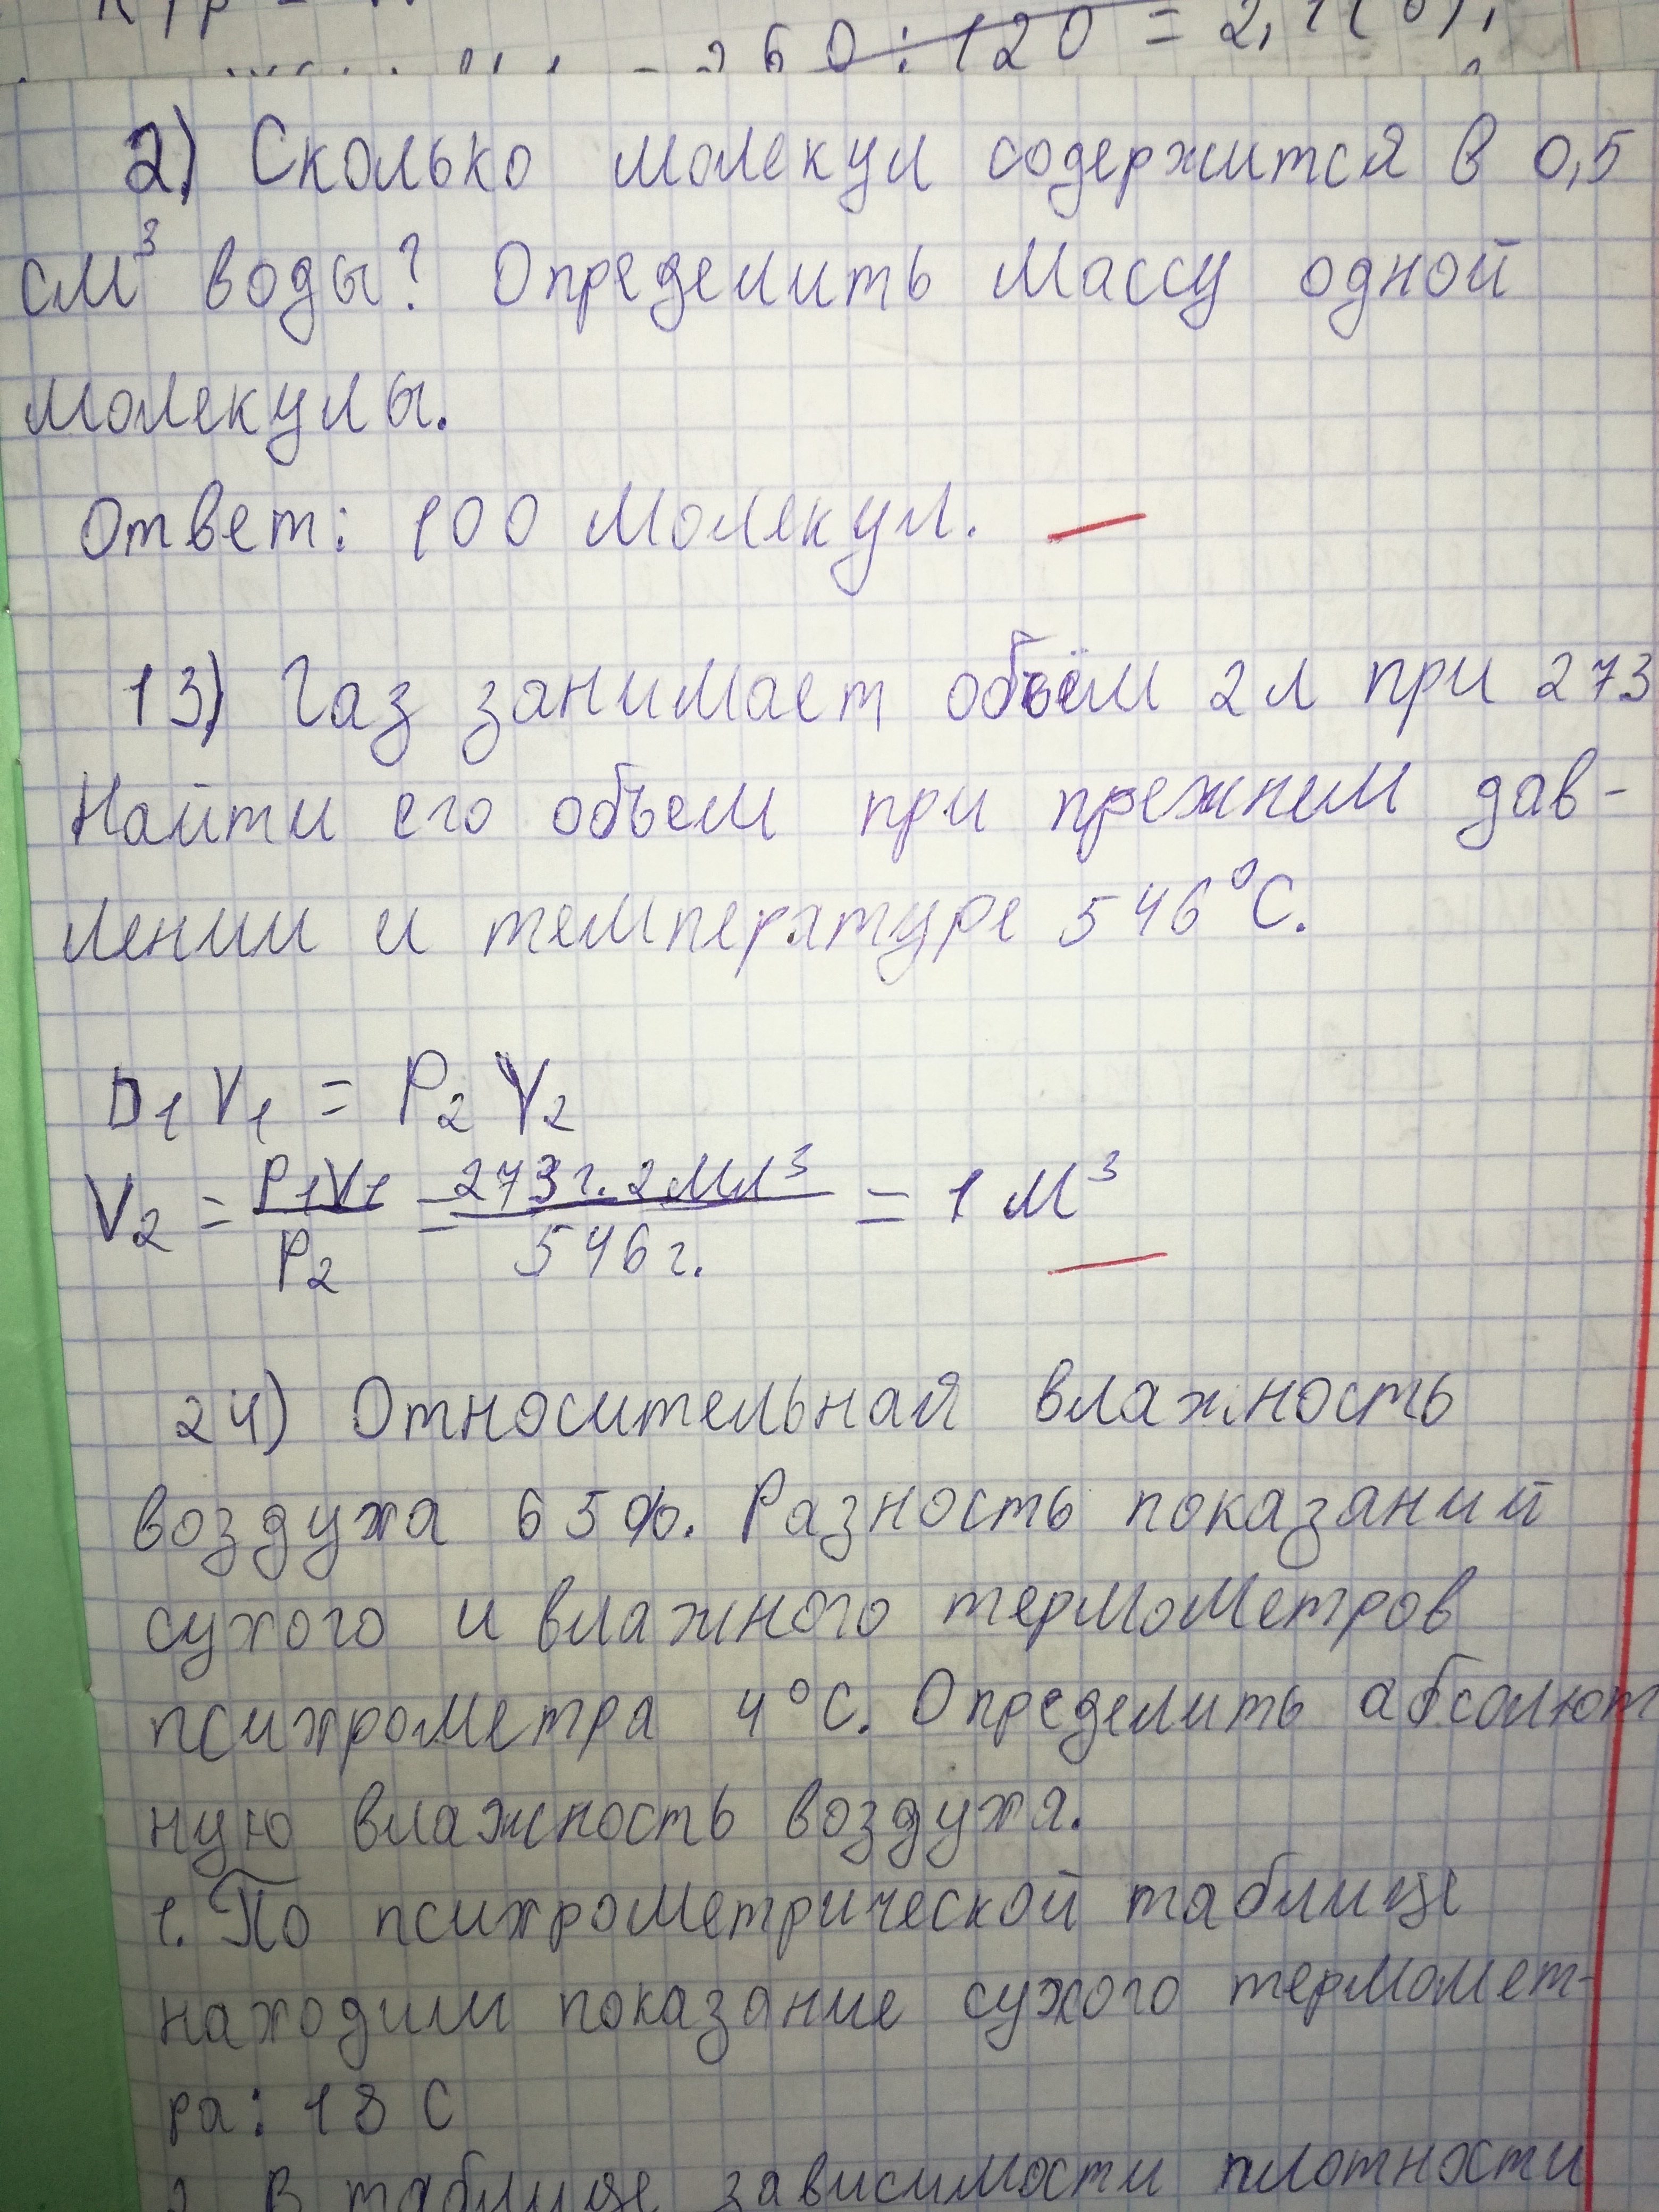 260:120 = 2,1
2) Сколько молекул содержится в 0,5
см³ воды? Определить массу одной
молекулы.
Ответ: 100 молекул.
13) Газ занимает объём 2 л при 273
Найти его объем при прежнем дав-
лении и температуре 546°С.
D₁V₁ = P₂V₂
V₂ = P₁V₁/P₂ = 273г. 2мл³/546г. = 1м³
24) Относительная влажность
воздуха 65%. Разность показаний
сухого и влажного термометров
психрометра 4°С. Определить абсолют
ную влажность воздуха.
1. По психрометрической таблице
находим показание сухого термомет-
ра: 18 С
2. В таблице зависимости плотности